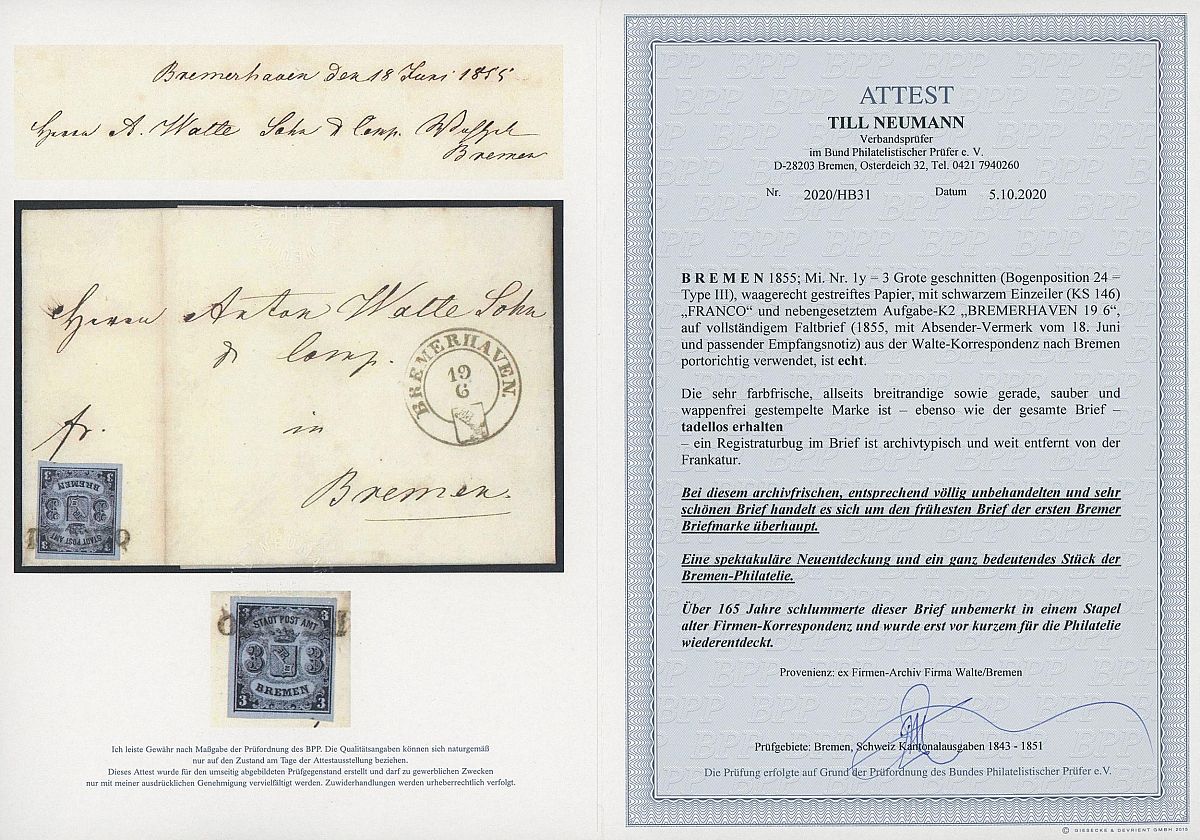 Bremerhaven den 18 Juni 1855
Herrn A. Walte Sohn & Comp.
Bremen
Herrn Anton Walte Sohn
& Comp.
BREMERHAVEN.
19
6
in
fr.
Bremen.
3 3
STADT POST AMT
3 3
BREMEN
3 3
3 3
STADT POST AMT
3 3
BREMEN
3 3
Ich leiste Gewähr nach Maßgabe der Prüfordnung des BPP. Die Qualitätsangaben können sich naturgemäß
nur auf den Zustand am Tage der Attestausstellung beziehen.
Dieses Attest wurde für den umseitig abgebildeten Prüfgegenstand erstellt und darf zu gewerblichen Zwecken
nur mit meiner ausdrücklichen Genehmigung vervielfältigt werden. Zuwiderhandlungen werden urheberrechtlich verfolgt.
ATTEST
TILL NEUMANN
Verbandsprüfer
im Bund Philatelistischer Prüfer e. V.
D-28203 Bremen, Osterdeich 32, Tel. 0421 7940260
Nr. 2020/HB31 Datum 5.10.2020
B R E M E N 1855; Mi. Nr. 1y = 3 Grote geschnitten (Bogenposition 24 =
Type III), waagerecht gestreiftes Papier, mit schwarzem Einzeiler (KS 146)
„FRANCO“ und nebengesetztem Aufgabe-K2 „BREMERHAVEN 19 6“,
auf vollständigem Faltbrief (1855, mit Absender-Vermerk vom 18. Juni
und passender Empfangsnotiz) aus der Walte-Korrespondenz nach Bremen
portorichtig verwendet, ist echt.
Die sehr farbfrische, allseits breitrandige sowie gerade, sauber und
wappenfrei gestempelte Marke ist – ebenso wie der gesamte Brief –
tadellos erhalten
– ein Registraturbug im Brief ist archivtypisch und weit entfernt von der
Frankatur.
Bei diesem archivfrischen, entsprechend völlig unbehandelten und sehr
schönen Brief handelt es sich um den frühesten Brief der ersten Bremer
Briefmarke überhaupt.
Eine spektakuläre Neuentdeckung und ein ganz bedeutendes Stück der
Bremen-Philatelie.
Über 165 Jahre schlummerte dieser Brief unbemerkt in einem Stapel
alter Firmen-Korrespondenz und wurde erst vor kurzem für die Philatelie
wiederentdeckt.
Provenienz: ex Firmen-Archiv Firma Walte/Bremen
Prüfgebiete: Bremen, Schweiz Kantonalausgaben 1843 - 1851
Die Prüfung erfolgte auf Grund der Prüfordnung des Bundes Philatelistischer Prüfer e.V.
© GIESECKE & DEVRIENT GMBH 2015